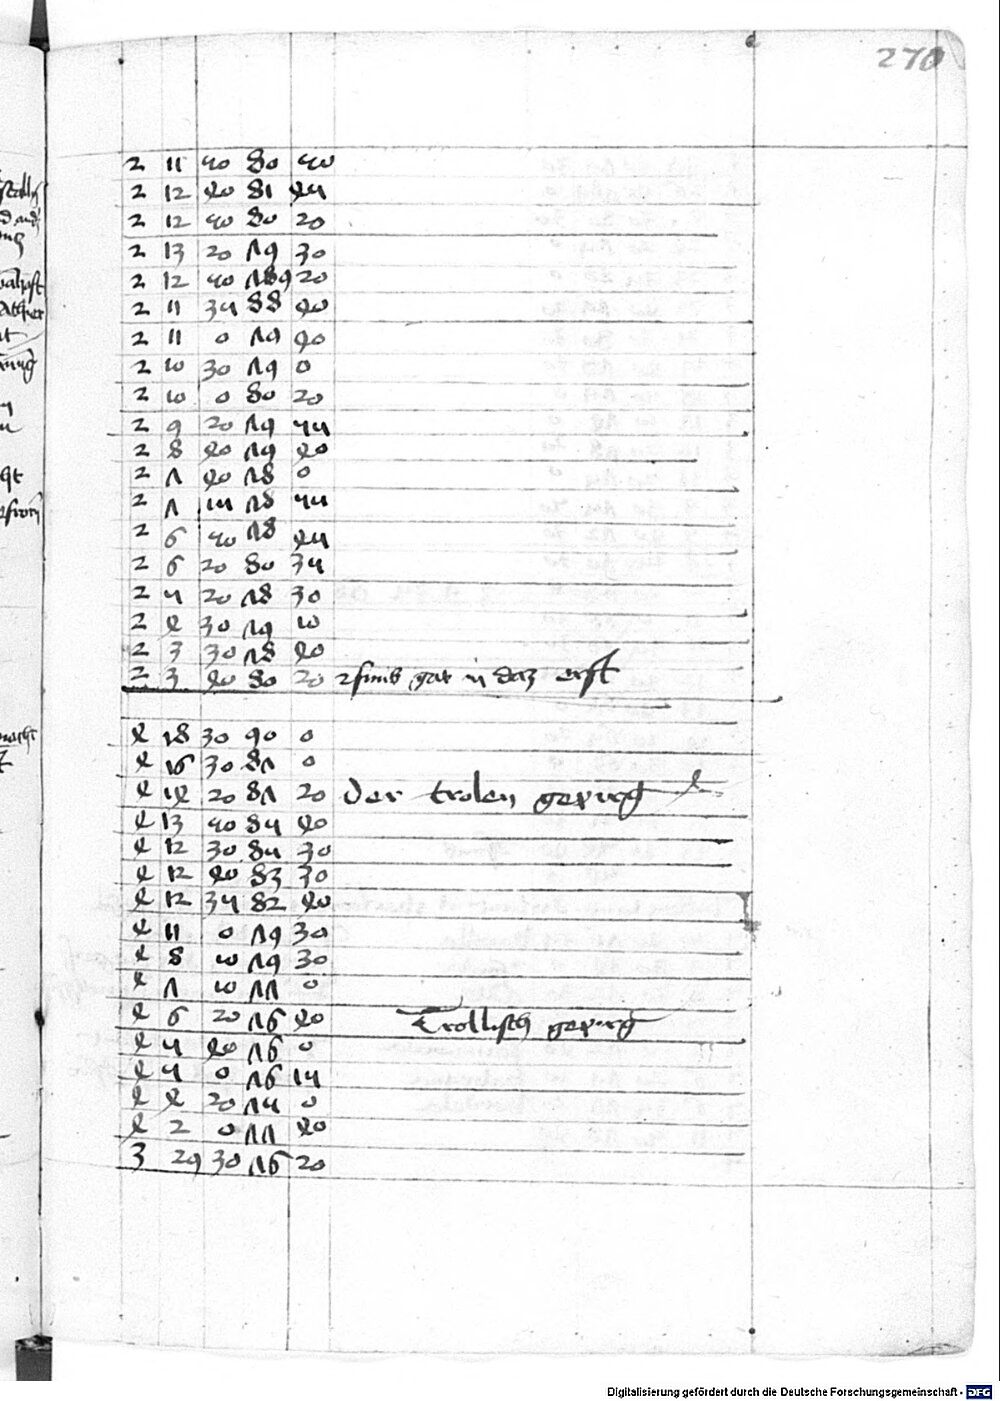 270
2 11 50 80 50
2 12 40 81 45
2 12 50 80 20
2 13 20 79 30
2 12 50 789 20
2 11 35 88 40
2 11 0 79 40
2 10 30 79 0
2 10 0 80 20
2 9 20 79 55
2 8 40 79 40
2 7 40 78 0
2 7 15 78 55
2 6 50 78 45
2 6 20 80 35
2 5 20 78 30
2 4 30 79 10
2 3 30 78 40
2 3 40 80 20 gar in daz erst
4 18 30 90 0
4 16 30 87 0
4 14 20 87 20 Der trolen gepirg
4 13 50 85 40
4 12 30 84 30
4 12 40 83 30
4 12 35 82 40
4 11 0 79 30
4 8 10 79 30
4 7 10 77 0
4 6 20 76 40 Trollisch gepirg
4 5 40 76 0
4 5 0 76 15
4 4 20 75 0
4 2 0 77 40
3 29 30 76 20
Digitalisierung gefördert durch die Deutsche Forschungsgemeinschaft - DFG